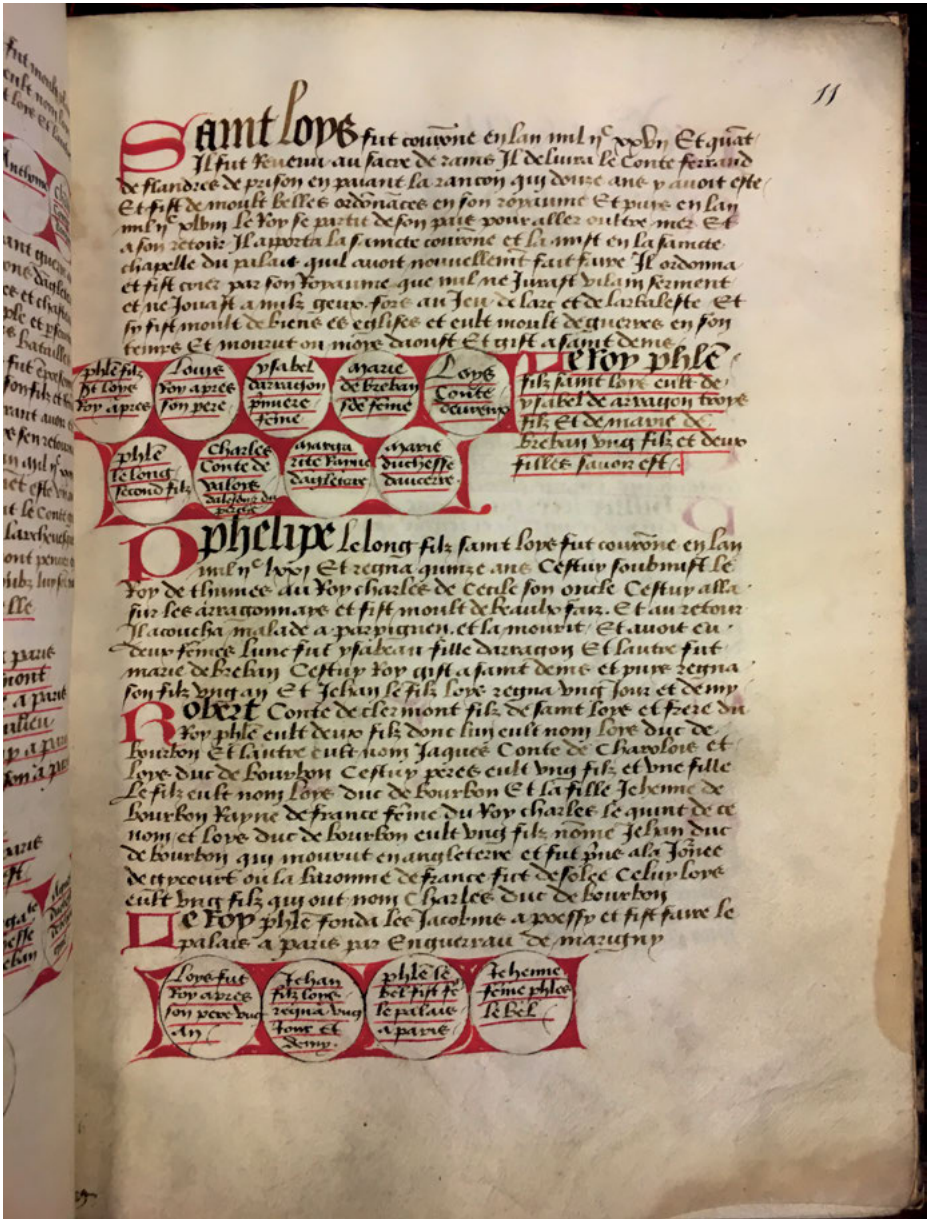 11
Saint loys fut couronne en lan mil iic xxvii Et quāt
Il fut Revenu au sacre de rains Il delivra le Conte ferrand
de flandres de prison en paiant la rancon qui douze ans y avoit este
Et fist de moult belles ordōnāces en son royaume Et puis en lan
mil iic xlviii le Roy se partit de son pais pour aller oultre mer Et
a son retour Il apporta la saincte courōne et la mist en la saincte
chapelle du palais quil avoit nouvellemēt fait faire Il ordonna
et fist crier par son Royaume que nul ne Jurast vilain serment
et ne Jouast a nulz geux fors au Jeu de larc et de larbaleste Et
sy fist moult de biens es eglises et eult moult de guerres en son
temps Et mourut ou moys daoust Et gist a saint denis
phlē filz
St loys
Roy apres
Louis
Roy apres
son pere
ysabel
darragon
pmiere
fēme
marie
de breban
sde fēme
Loys
Conte
deureux
Le roy phlē
filz saint loys eult de
ysabel de arragon troys
filz Et de marie de
breban ung filz et deux
filles savoir est
phlē
le long
second filz
Charles
Conte de
valois
dalēson du
perche
marga
rite Rayne
dāgleterre
marie
duchesse
daucerre
Phelipe le long filz saint loys fut couronne en lan
mil iic lxxi Et regna quinze ans Cestuy soubmist le
Roy de thunnes au Roy charles de Cecile son oncle Cestuy alla
sur les arragonnays et fist moult de beaulx faiz. Et au retour
Il acoucha malade a parpignen. et la mourut. Et avoit eu
deux fēmes lune fut ysabeau fille darragon Et lautre fut
marie de breban Cestuy Roy gist a saint denis et puis regna
son filz ung an Et Jehan le filz loys regna ung Jour et demy
Robert Conte de clermont filz de saint loys et frere du
Roy phlē eult deux filz donc lun eult nom loys duc de
bourbon Et lautre eult nom Jaques Conte de Charolois et
loys duc de bourbon Cestuy peres eult ung filz et une fille
Le filz eult nom loys duc de bourbon Et la fille Jehenne de
bourbon Rayne de france fēme du Roy charles le quint de ce
nom et loys duc de bourbon eult ung filz nōme Jehan duc
de bourbon qui mourut en angleterre et fut pīns a la Jōnee
de agycourt ou la baronnie de france fut desolee Celuy loys
eult ung filz qui out nom Charles duc de bourbon
Le roy phlē fonda les Jacobins a poessy et fist faire le
palais a paris par Enguerrau de marigny
Loys fut
Roy apres
son pere ung
An
Jehan
filz loys
regna ung
Jour et
demy
phlē le
bel fist fe
le palais
a paris
Jehenne
fēme phles
le bel